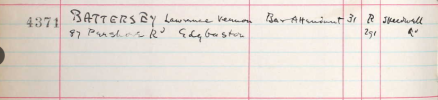 4371 BATTERSBY Lawrence Vernon Bar Attendant 31 R
87 Pershore Rd Edgbaston 291 Rd